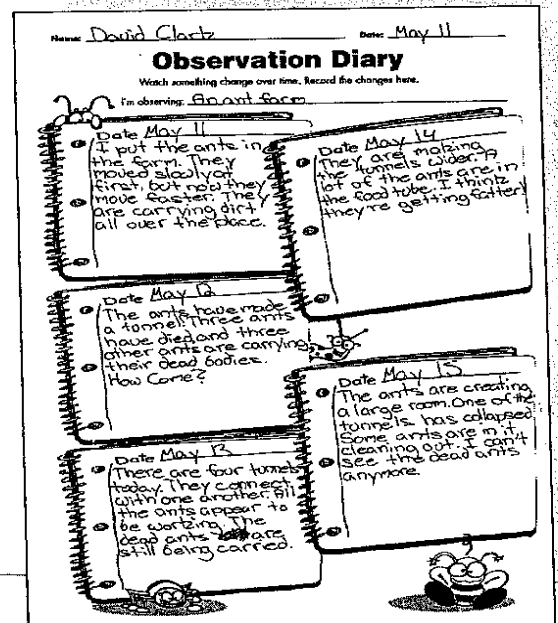 Name: David Clark Date: May 11
Observation Diary
Watch something change over time. Record the changes here.
I'm observing: An ant farm
Date May 11
I put the ants in
the farm. They
moved slowly at
first, but now they
move faster. They
are carrying dirt
all over the place.
Date May 12
The ants have made
a tunnel. Three ants
have died, and three
other ants are carrying
their dead bodies.
How Come?
Date May 13
There are four tunnels
today. They connect
with one another. All
the ants appear to
be working. The
dead ants are
still being carried.
Date May 14
They are making
the tunnels wider. A
lot of the ants are in
the food tube. I think
they're getting fatter!
Date May 15
The ants are creating
a large room. One of the
tunnels has collapsed.
Some ants are in it,
cleaning out. I can't
see the dead ants
anymore.